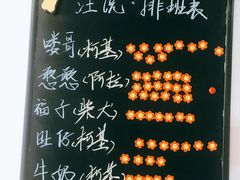 汪汪·排班表
喽哥(柯基)
憨憨(阿拉)
福子(柴犬)
旺仔(柯基)
牛奶(柯基)